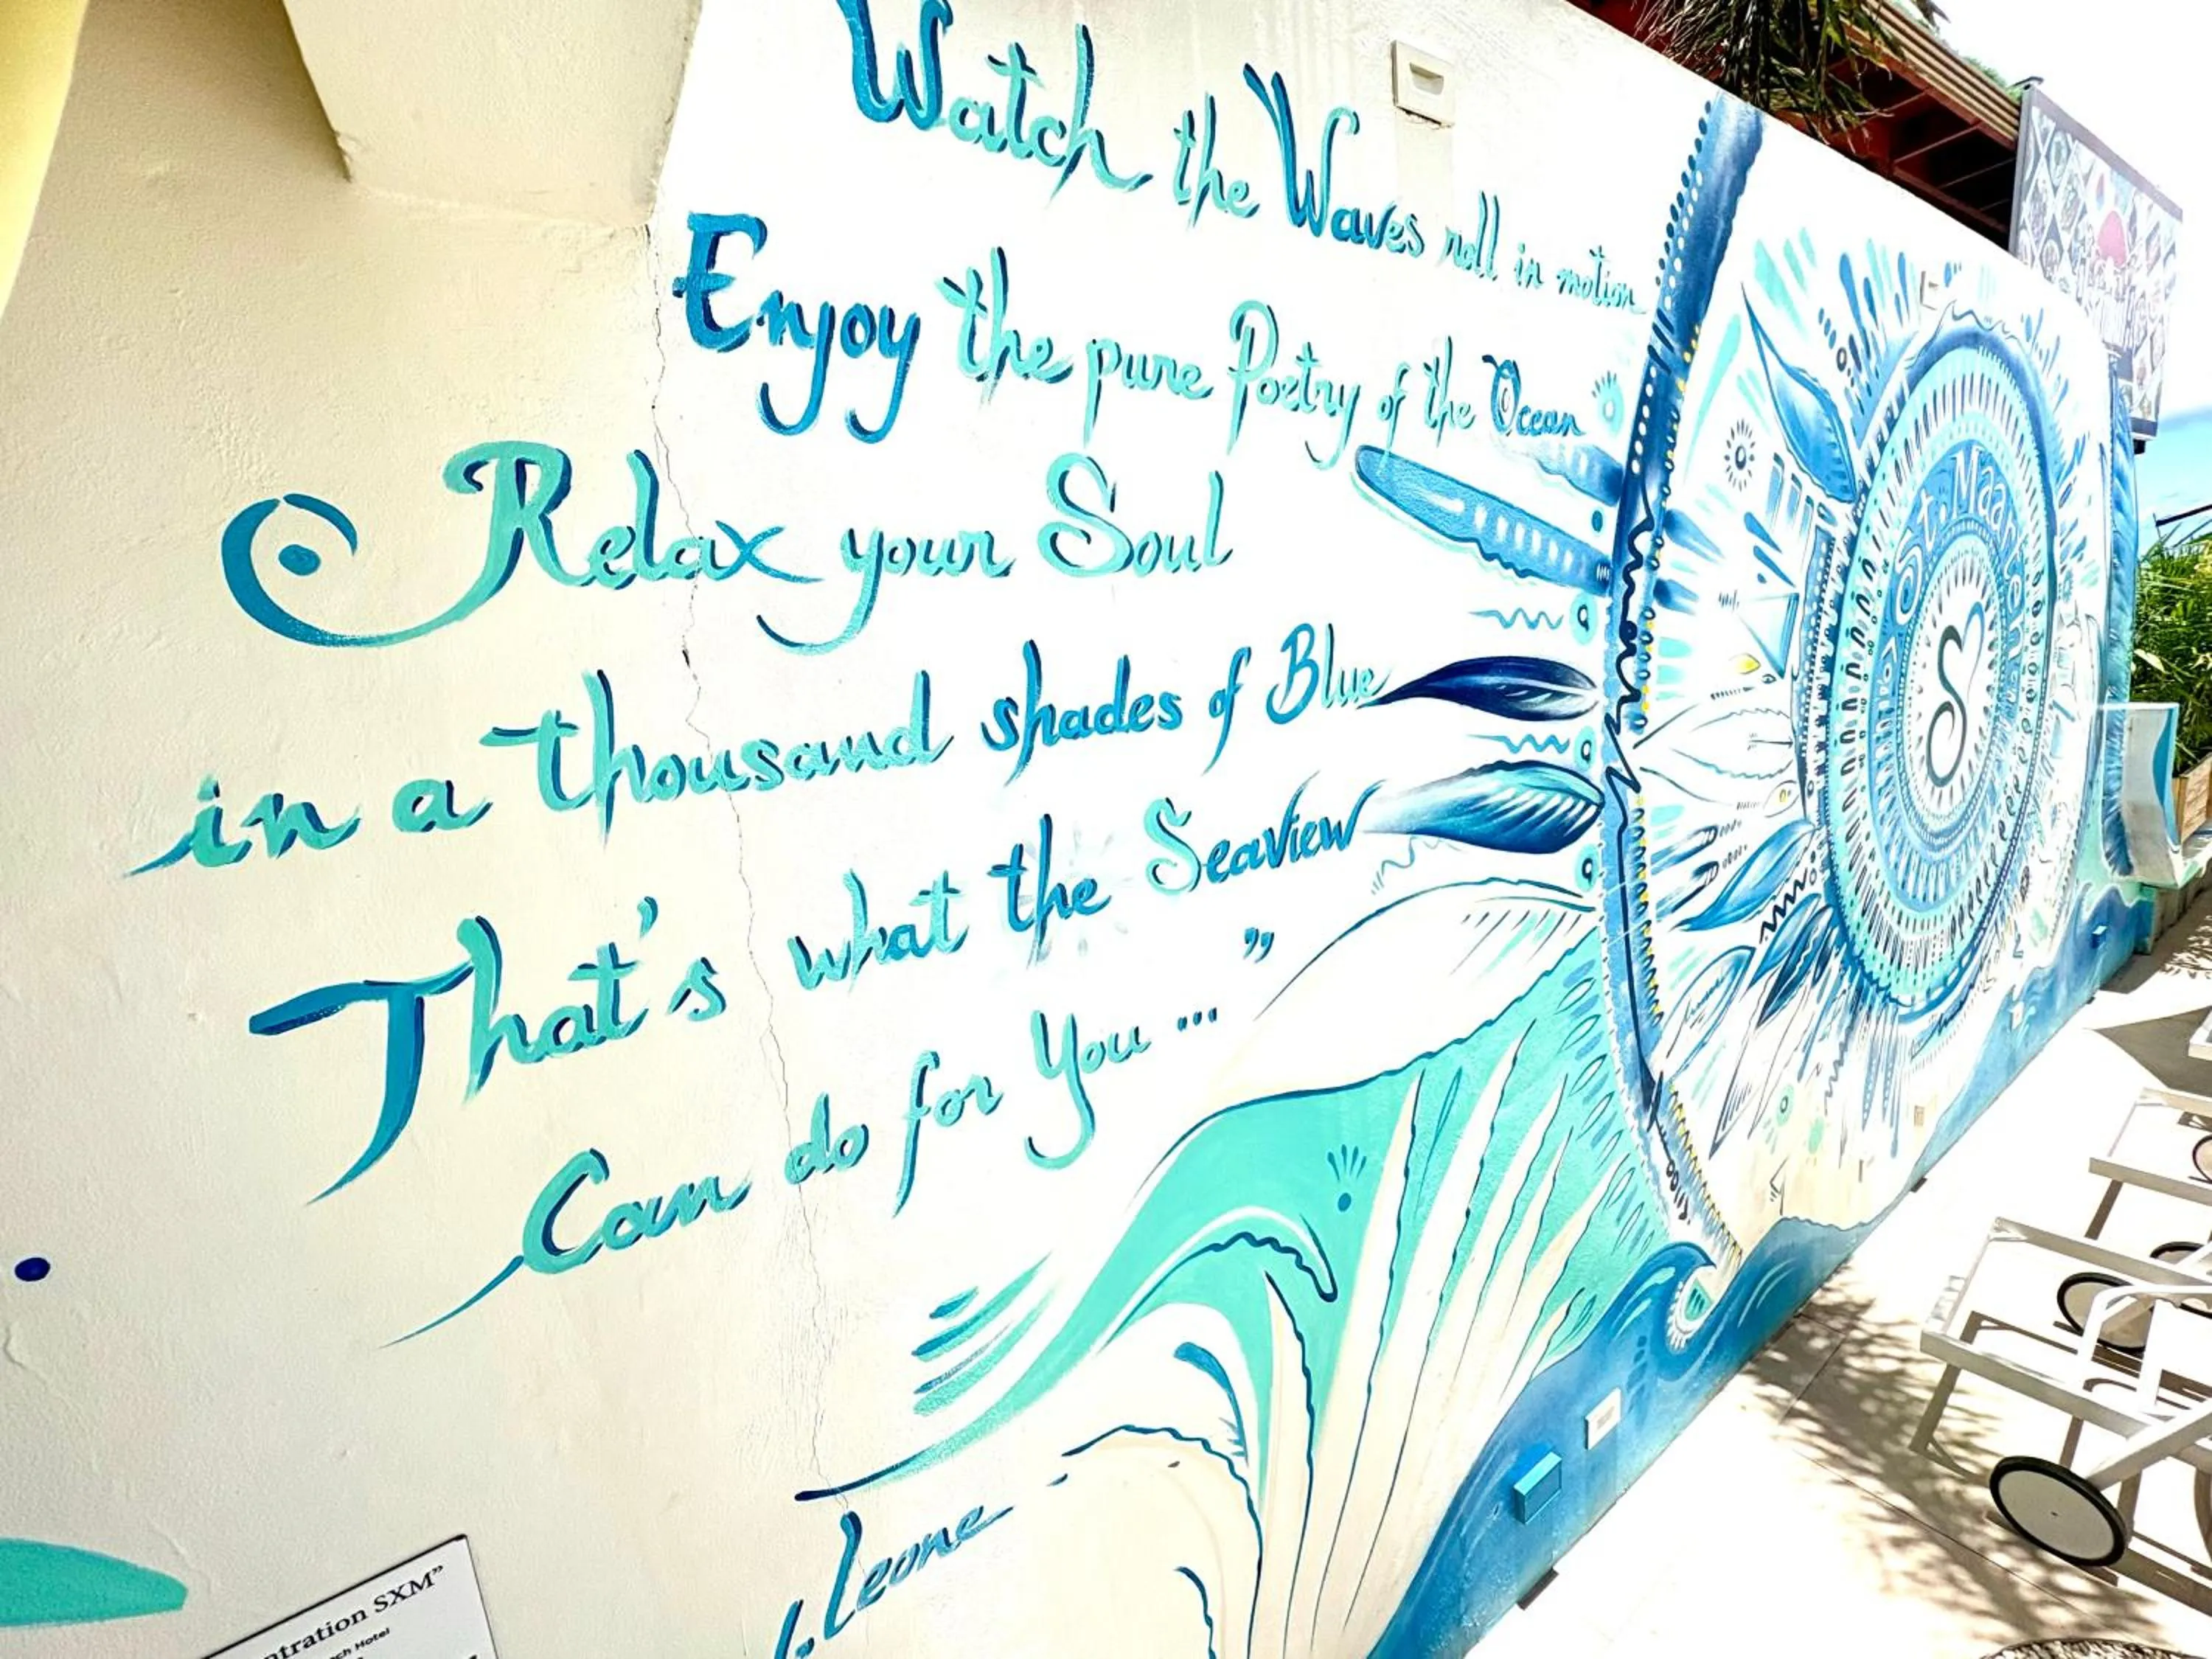 Watch the Waves roll in motion
Enjoy the pure Poetry of the Ocean
Relax your Soul
in a thousand shades of Blue
That's what the Seaview
Can do for You ... ”
Leone
St. Maarten
SXM”
Hotel